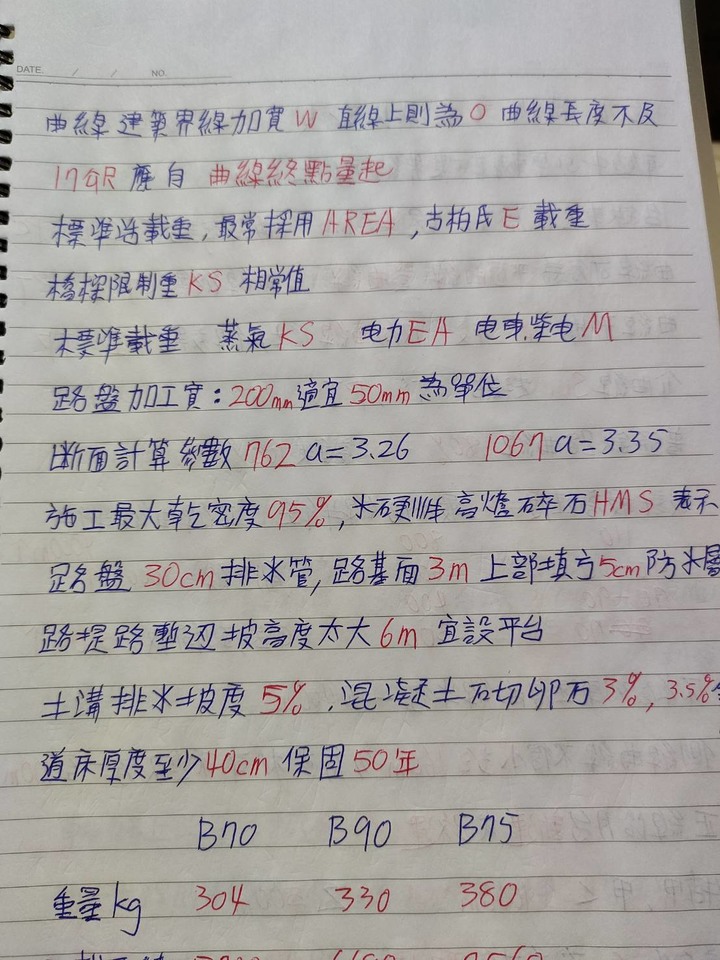 DATE. / / NO.
曲線建築界線加寬W 直線上則為0 曲線長度不及
17公尺應自 曲線終點量起
標準活載重,最常採用AREA,古柏氏E載重
橋樑限制重KS相當值
標準載重 蒸氣KS 电力EA 电車.柴电M
路盤加工寬:200mm適宜50mm為單位
断面計算參數762 a=3.26 1067 a=3.35
施工最大乾密度95%,水硬性高爐碎石HMS表示
路盤30cm排水管,路基面3m上部填方5cm防水層
路堤路塹边坡高度太大6m宜設平台
土溝排水坡度5%,混凝土石切卵石3%,3.5%
道床厚度至少40cm 保固50年
B70 B90 B75
重量kg 304 330 380